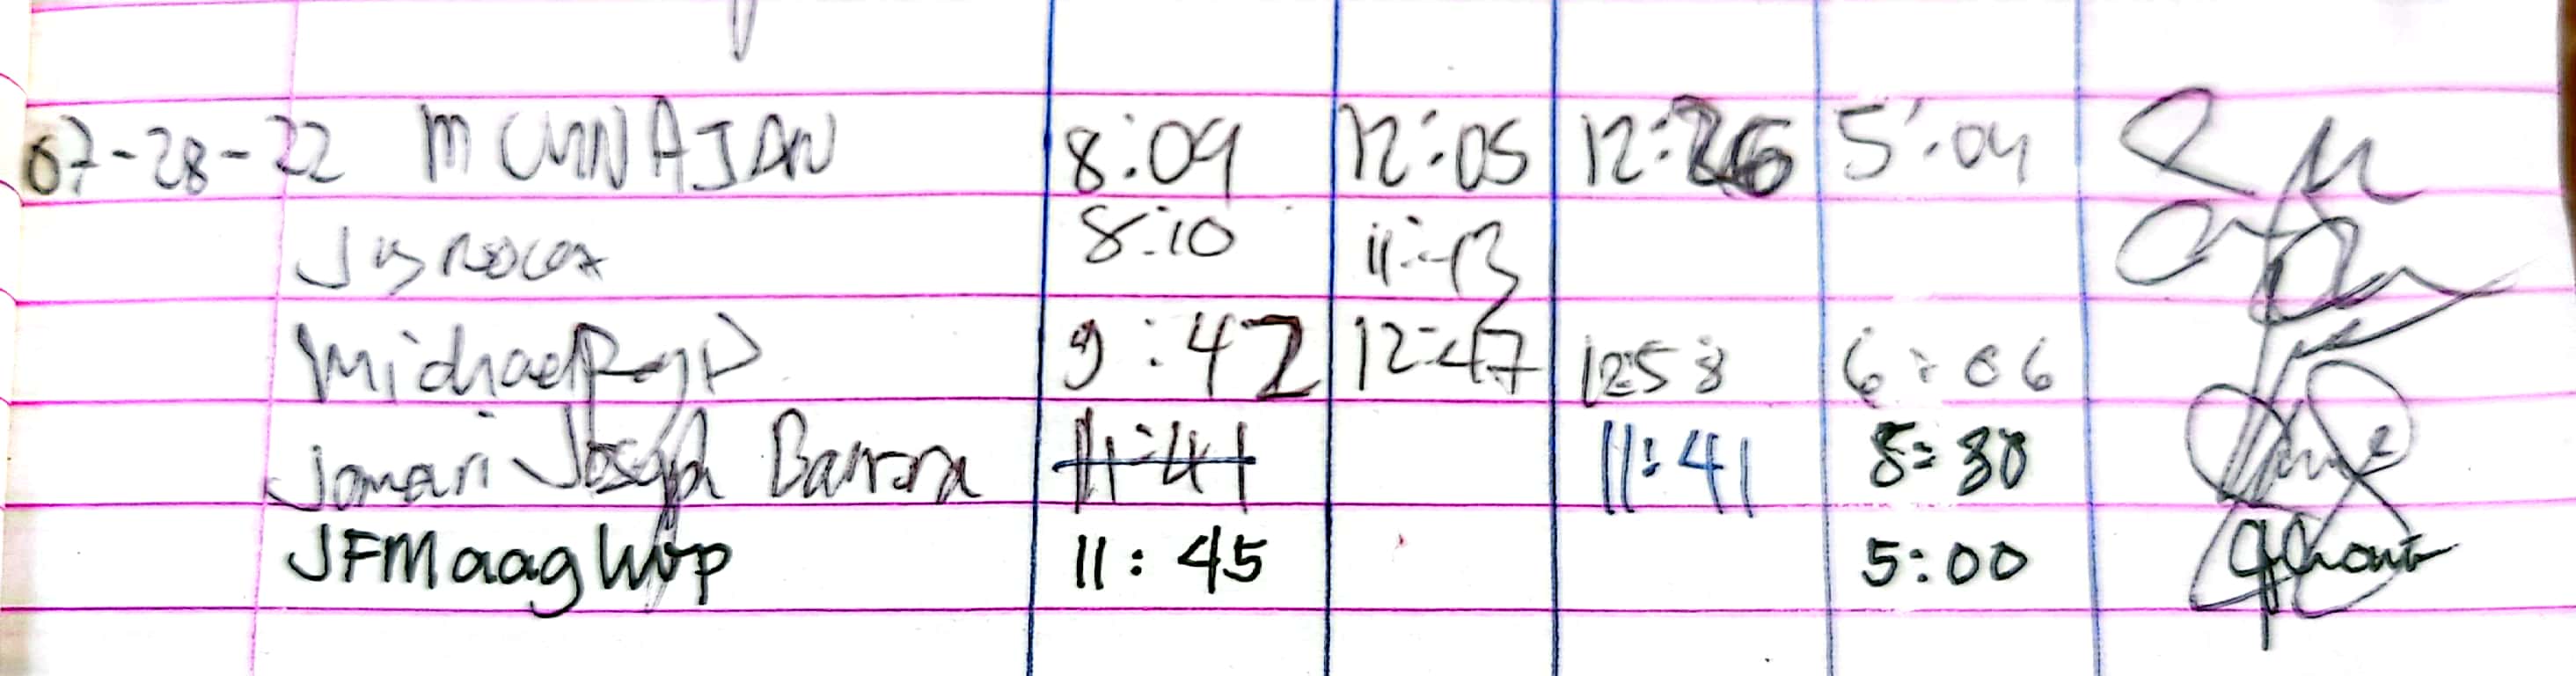 07-28-22 MCUNNAJAN 8:09 12:05 12:26 5:04
8:10 11:13
Michael 9:42 12:47 12:58 6:06
Jomari Joseph Barrera 11:41 11:41 5:30
JFMaaghop 11:45 5:00